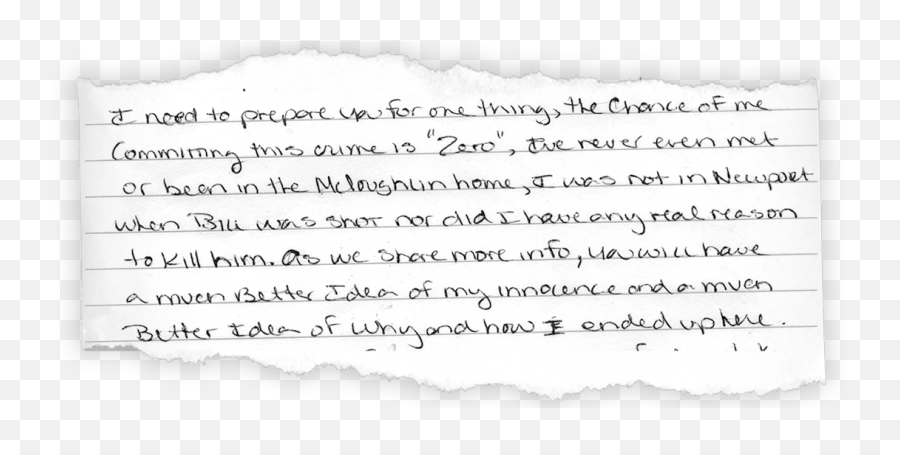 I need to prepare you for one thing, the Chance of me
Committing this crime is "Zero", I've never even met
or been in the McLoughlin home, I was not in Newport
when Bill was shot nor did I have any real reason
to kill him. As we share more info, you will have
a much Better Idea of my innocence and a much
Better Idea of why and how I ended up here.